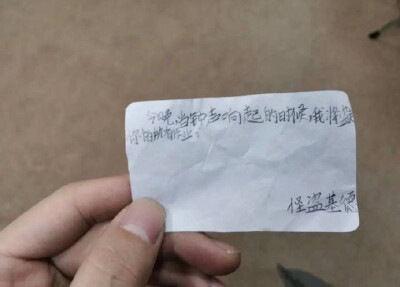 今晚,当钟声响起的时候,我将
你的所有作业。
怪盗基德